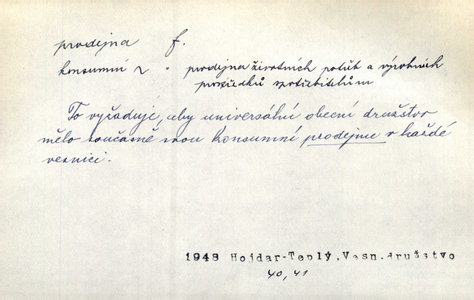 prodejna f.
konsumní ~ = prodejna životních potřeb a výrobních
prostředků spotřebitelům
To vyžaduje, aby universální obecní družstvo
mělo současně svou konsumní prodejnu v každé
vesnici.
1948 Hojdar-Teplý, Vesn.družstvo
40, 41